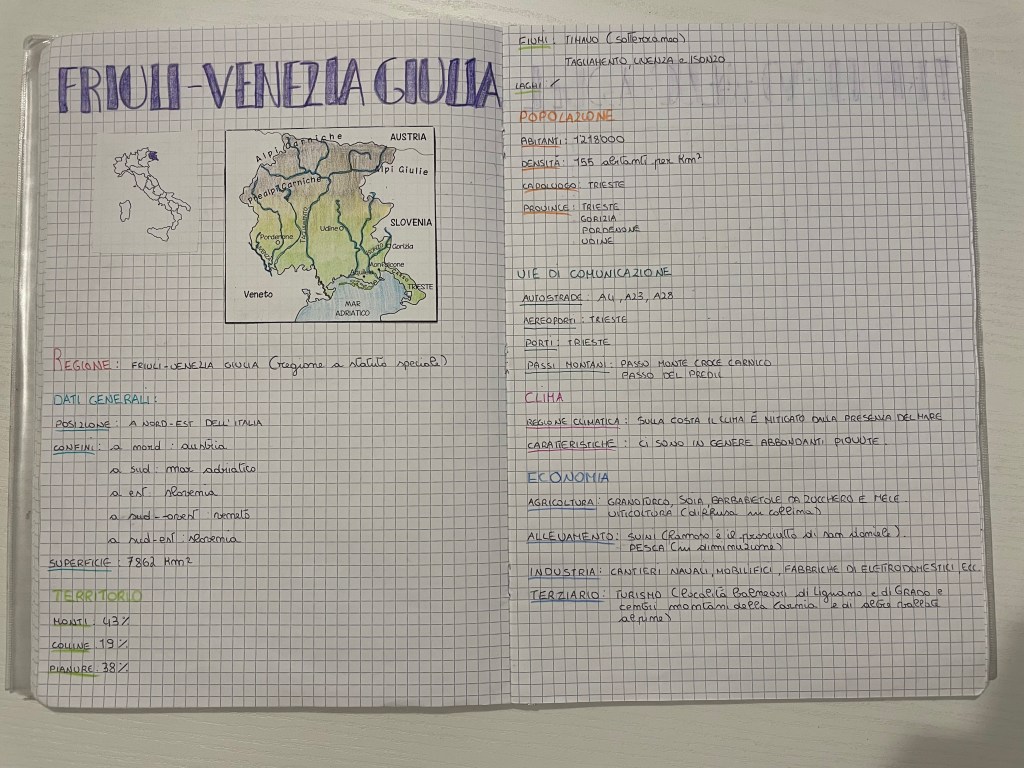 FRIULI-VENEZIA GIULIA
Alpi Carniche
AUSTRIA
Alpi Giulie
Prealpi Carniche
SLOVENIA
Udine
Pordenone
Gorizia
Monfalcone
Aquileia
TRIESTE
Veneto
MAR
ADRIATICO
REGIONE: FRIULI-VENEZIA GIULIA (regione a statuto speciale)
DATI GENERALI:
POSIZIONE: A NORD-EST DELL'ITALIA
CONFINI: a nord: austria
a sud: mar adriatico
a est: slovenia
a sud-ovest: veneto
a sud-est: slovenia
SUPERFICIE: 7862 Km²
TERRITORIO
MONTI: 43%
COLLINE: 19%
PIANURE: 38%
FIUMI: TIMAVO (sotterraneo)
TAGLIAMENTO, LIVENZA e ISONZO
LAGHI: /
POPOLAZIONE
ABITANTI: 1218000
DENSITÀ: 155 abitanti per Km²
CAPOLUOGO: TRIESTE
PROVINCE: TRIESTE
GORIZIA
PORDENONE
UDINE
VIE DI COMUNICAZIONE
AUTOSTRADE: A4, A23, A28
AEREOPORTI: TRIESTE
PORTI: TRIESTE
PASSI MONTANI: PASSO MONTE CROCE CARNICO
PASSO DEL PREDIL
CLIMA
REGIONE CLIMATICA: SULLA COSTA IL CLIMA È MITIGATO DALLA PRESENZA DEL MARE
CARATTERISTICHE: CI SONO IN GENERE ABBONDANTI PIOVUTE.
ECONOMIA
AGRICOLTURA: GRANOTURCO, SOIA, BARBABIETOLE DA ZUCCHERO E MELE
VITICOLTURA (diffusa in collina)
ALLEVAMENTO: SUINI (famoso è il prosciutto di san daniele).
PESCA (in diminuzione)
INDUSTRIA: CANTIERI NAVALI, MOBILIFICI, FABBRICHE DI ELETTRODOMESTICI, ECC.
TERZIARIO: TURISMO (località balneari di Lignano e di GRADO e
centri montani della Carnia e di altre vallate
alpine)